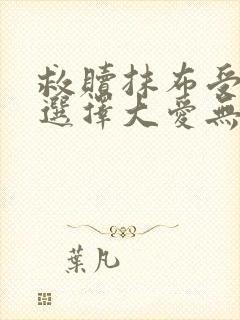 救贖抹布受
選擇大愛無
葉凡